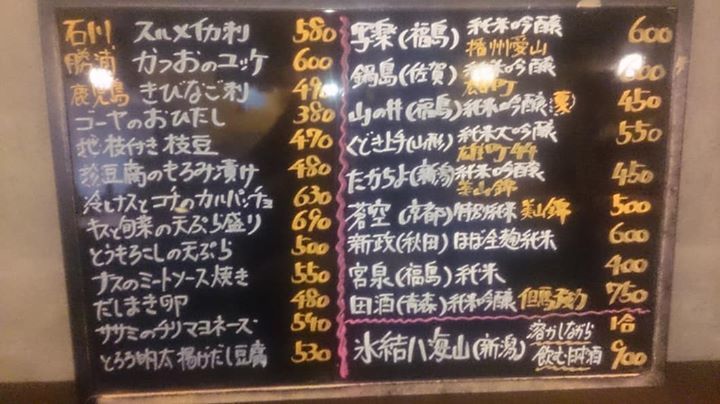 石川 スルメイカ刺 580
勝浦 かつおのユッケ 600
鹿児島 きびなご刺 490
ゴーヤのおひたし 380
枝付き 枝豆 470
豆腐のもろみ漬け 480
冷しナスとコチのカルパッチョ 630
キスと旬菜の天ぷら盛り 690
とうもろこしの天ぷら 500
ナスのミートソース焼き 550
だしまき卵 480
ササミのチリマヨネーズ 540
とろろ明太 揚げだし豆腐 530
写楽(福島) 純米吟醸 播州愛山 600
鍋島(佐賀) 純米吟醸 雄町
山の井(福島) 純米吟醸 夏 450
くどき上手(山形) 純米大吟醸 雄町44 550
たかちよ(新潟) 純米吟醸 美山錦 450
蒼空(京都) 特別純米 美山錦 500
新政(秋田) ほぼ全麹純米 600
宮泉(福島) 純米 400
田酒(青森) 純米吟醸 但馬強力 750
氷結八海山(新潟) 溶かしながら飲む日本酒 一合 900